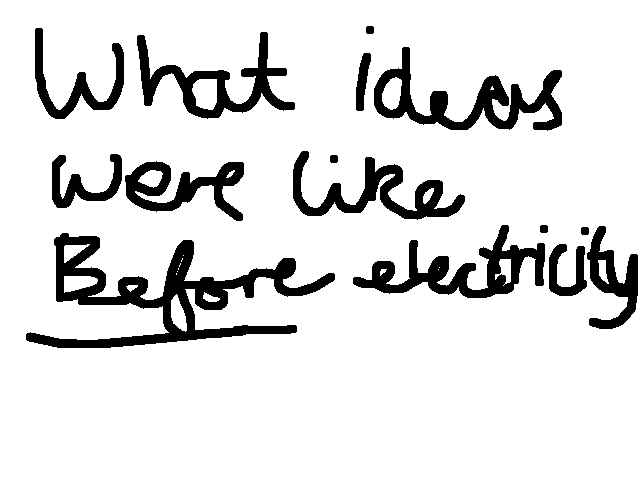 What ideas
were like
Before electricity